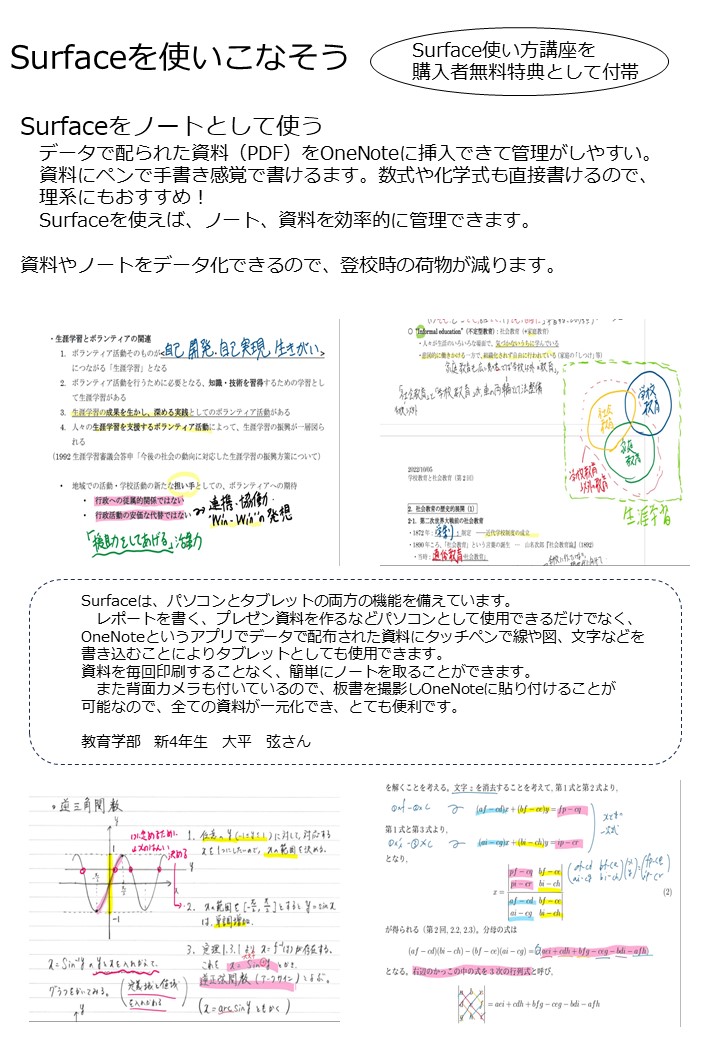 Surfaceを使いこなそう
Surface使い方講座を
購入者無料特典として付帯
Surfaceをノートとして使う
データで配られた資料（PDF）をOneNoteに挿入できて管理がしやすい。
資料にペンで手書き感覚で書けるます。数式や化学式も直接書けるので、
理系にもおすすめ！
Surfaceを使えば、ノート、資料を効率的に管理できます。
資料やノートをデータ化できるので、登校時の荷物が減ります。
・生涯学習とボランティアの関連
1. ボランティア活動そのものが<自己開発・自己実現・生きがい>
につながる「生涯学習」となる
2. ボランティア活動を行うために必要となる、知識・技術を習得するための学習とし
て生涯学習がある
3. 生涯学習の成果を生かし、深める実践としてのボランティア活動がある
4. 人々の生涯学習を支援するボランティア活動によって、生涯学習の振興が一層図ら
れる
（1992 生涯学習審議会答申「今後の社会の動向に対応した生涯学習の振興方策について）
• 地域での活動・学校活動の新たな担い手としての、ボランティアへの期待
• 行政への従属的関係ではない
• 行政活動の安価な代替ではない
連携・協働・
"Win-Win"な発想
「援助をしてあげる」活動
〇 "Informal education"（不定型教育）：社会教育（+家庭教育）
・人々が生活のいろいろな場面で、気づかないうちに学んでいる
・意図的に働きかける一方で、組織化されず自由に行われている（家庭の「しつけ」等）
「社会教育」と「学校教育」は車の両輪として整備
学校
教育
社会
教育
家庭
教育
学校教育
以外の教育
生涯学習
2022/10/05
学校教育と社会教育（第2回）
2. 社会教育の歴史的展開（1）
2-1. 第二次世界大戦前の社会教育
・1872年：学制：制定 ―近代学校制度の成立
・1890年ころ、「社会教育」という言葉の誕生 ― 山名次郎『社会教育論』（1892）
・当時：通俗教育（社会教育）
Surfaceは、パソコンとタブレットの両方の機能を備えています。
レポートを書く、プレゼン資料を作るなどパソコンとして使用できるだけでなく、
OneNoteというアプリでデータで配布された資料にタッチペンで線や図、文字などを
書き込むことによりタブレットとしても使用できます。
資料を毎回印刷することなく、簡単にノートを取ることができます。
また背面カメラも付いているので、板書を撮影しOneNoteに貼り付けることが
可能なので、全ての資料が一元化でき、とても便利です。
教育学部　新4年生　大平　弦さん
。逆三角関数
1. 任意のy(-1≤y≤1)に対して、対応する
xを1つにしたいので、xの範囲を決める。
決める
2. xの範囲を[-π/2, π/2]とするとy=sinx
は、単調増加。
3. 定理1.3.1より x=f⁻¹(y)が存在する。
これを x=Sin⁻¹y とかき、
逆正弦関数（アークサイン）とよぶ。
(x=arcsin yともかく)
x=Sin⁻¹yのyとxを入れかえて、
グラフをかいてみる。
(定義域と値域
を入れかえる)
を解くことを考える。文字 z を消去することを考えて、第1式と第2式より、
(af − cd)x + (bf − ce)y = fp − cq
第1式と第3式より、
(ai − cg)x + (bi − ch)y = ip − cr
となり、
x = |pf − cq bf − ce| |pi − cr bi − ch| / |af − cd bf − ce| |ai − cg bi − ch| (2)
が得られる（第2回, 2.2, 2.3)。分母の式は
(af − cd)(bi − ch) − (bf − ce)(ai − cg) = a(aei + cdh + bfg − ceg − bdi − afh)
となる。右辺のかっこの中の式を3次の行列式と呼び、
= aei + cdh + bfg − ceg − bdi − afh